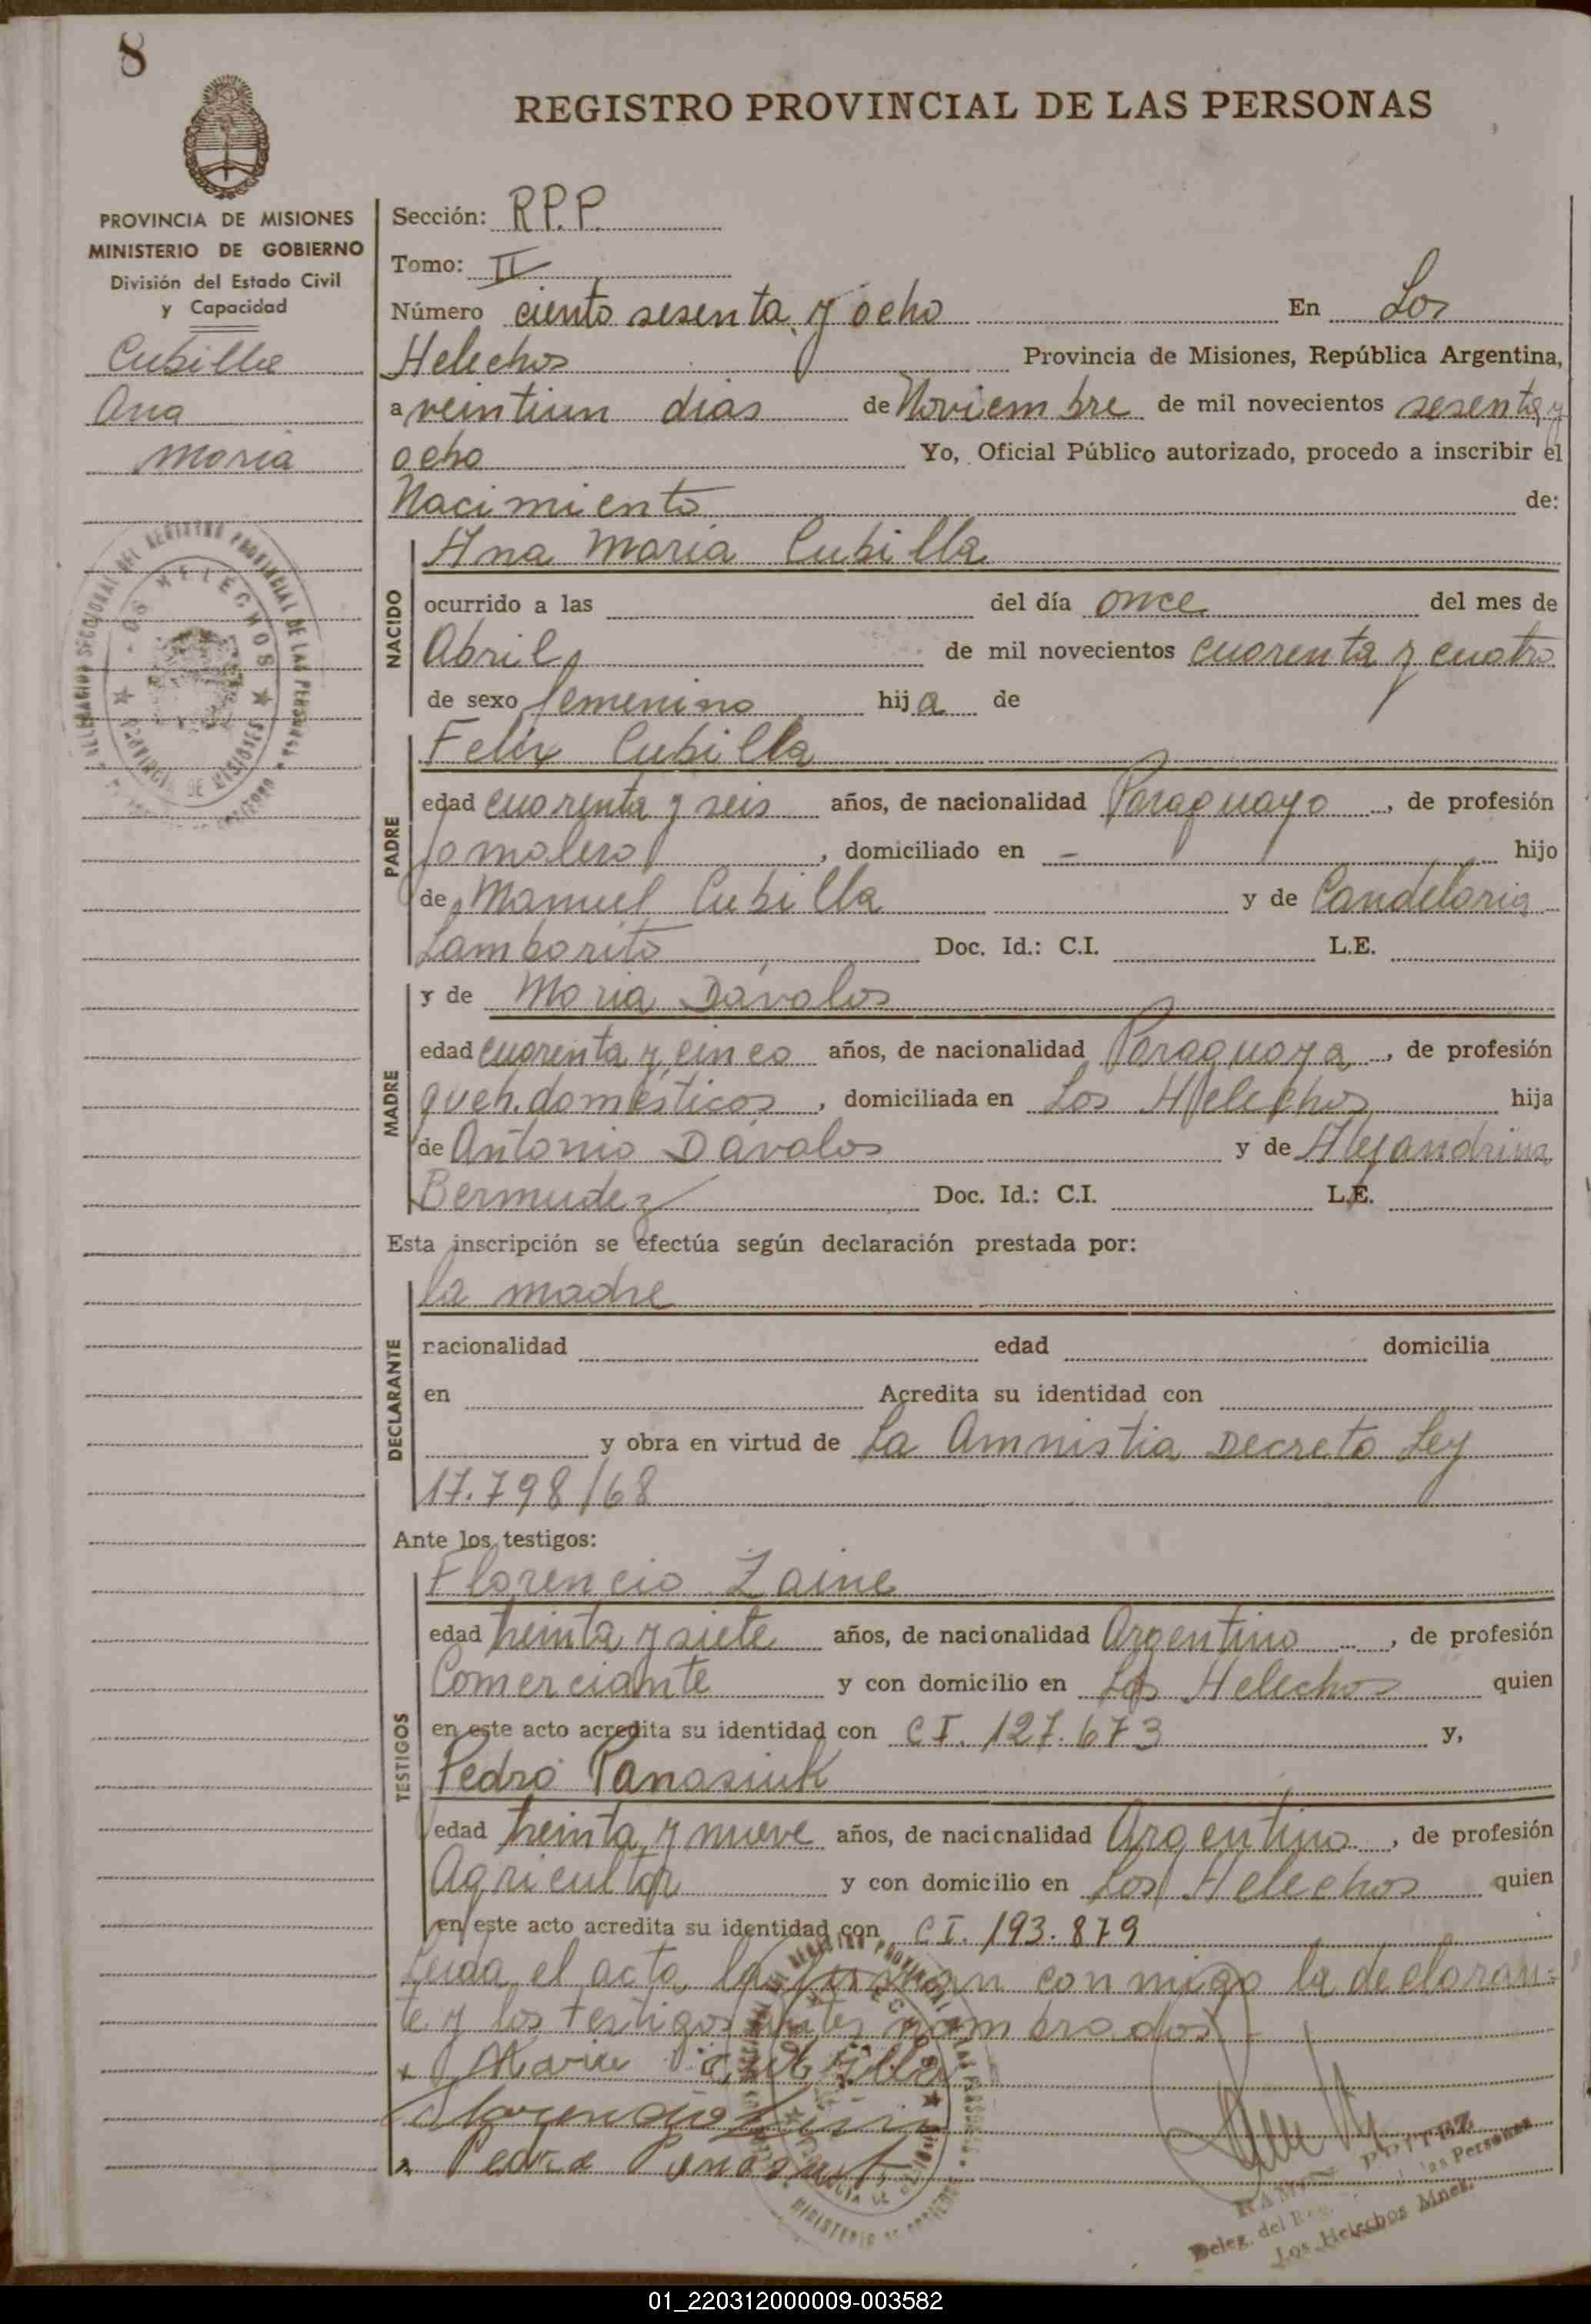 8
REGISTRO PROVINCIAL DE LAS PERSONAS
PROVINCIA DE MISIONES
MINISTERIO DE GOBIERNO
División del Estado Civil
y Capacidad
Cubilla
Ana
Maria
Sección: R.P.P.
Tomo: II
Número ciento sesenta y ocho En Los
Helechos Provincia de Misiones, República Argentina,
a veintiun dias de Noviembre de mil novecientos sesenta y
ocho Yo, Oficial Público autorizado, procedo a inscribir el
Nacimiento de:
NACIDO
Ana Maria Cubilla
ocurrido a las del día once del mes de
Abril de mil novecientos cuarenta y cuatro
de sexo femenino hija de
PADRE
Felix Cubilla
edad cuarenta y seis años, de nacionalidad Paraguayo, de profesión
Jornalero, domiciliado en - hijo
de Manuel Cubilla y de Candelaria
Lamborito Doc. Id.: C.I. L.E.
MADRE
y de Maria Dávalos
edad cuarenta y cinco años, de nacionalidad Paraguaya, de profesión
queh. domésticos, domiciliada en Los Helechos hija
de Antonio Dávalos y de Alejandrina
Bermudez Doc. Id.: C.I. L.E.
Esta inscripción se efectúa según declaración prestada por:
DECLARANTE
la madre
nacionalidad edad domicilia
en Acredita su identidad con
y obra en virtud de La Amnistia Decreto Ley
17.798/68
Ante los testigos:
TESTIGOS
Florencio Zaine
edad treinta y siete años, de nacionalidad Argentino, de profesión
Comerciante y con domicilio en Los Helechos quien
en este acto acredita su identidad con C I. 127.673 y,
Pedro Panasiuk
edad treinta y nueve años, de nacionalidad Argentino, de profesión
Agricultor y con domicilio en Los Helechos quien
en este acto acredita su identidad con C I. 193.879
Leida el acta, la firman conmigo la declaran=
te y los testigos antes nombrados
Maria Cubilla
Pedro Panasiuk
Deleg. del Reg. las Personas
Los Helechos Mnes.
01_220312000009-003582